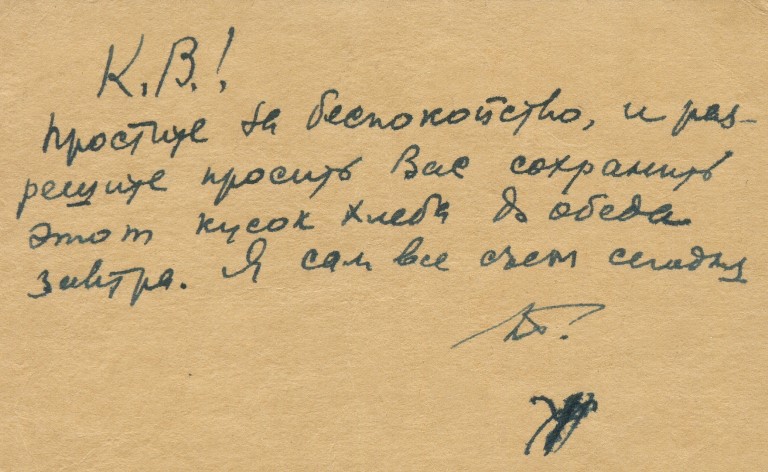 К.В.!
Простите за беспокойство, и раз-
решите просить Вас сохранить
этот кусок хлеба до обеда
завтра. Я сам все съем сегодня